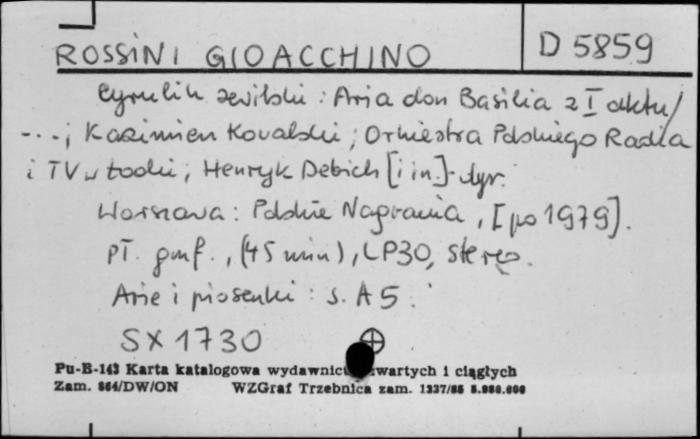 ROSSINI GIOACCHINO
D 5859
Cyrulik sewilski : Aria don Basilia z I aktu /
---; Kazimierz Kowalski ; Orkiestra Polskiego Radia
i TV w Łodzi ; Henryk Debich [i in.]- dyr.
Warszawa : Polskie Nagrania , [po 1979].
pł. gmf. , (45 min) , LP30, stereo.
Arie i piosenki : s. A 5 .
SX 1730
Pu-B-143 Karta katalogowa wydawnict wartych i ciągłych
Zam. 864/DW/ON WZGraf Trzebnica zam. 1337/86 5.980.000